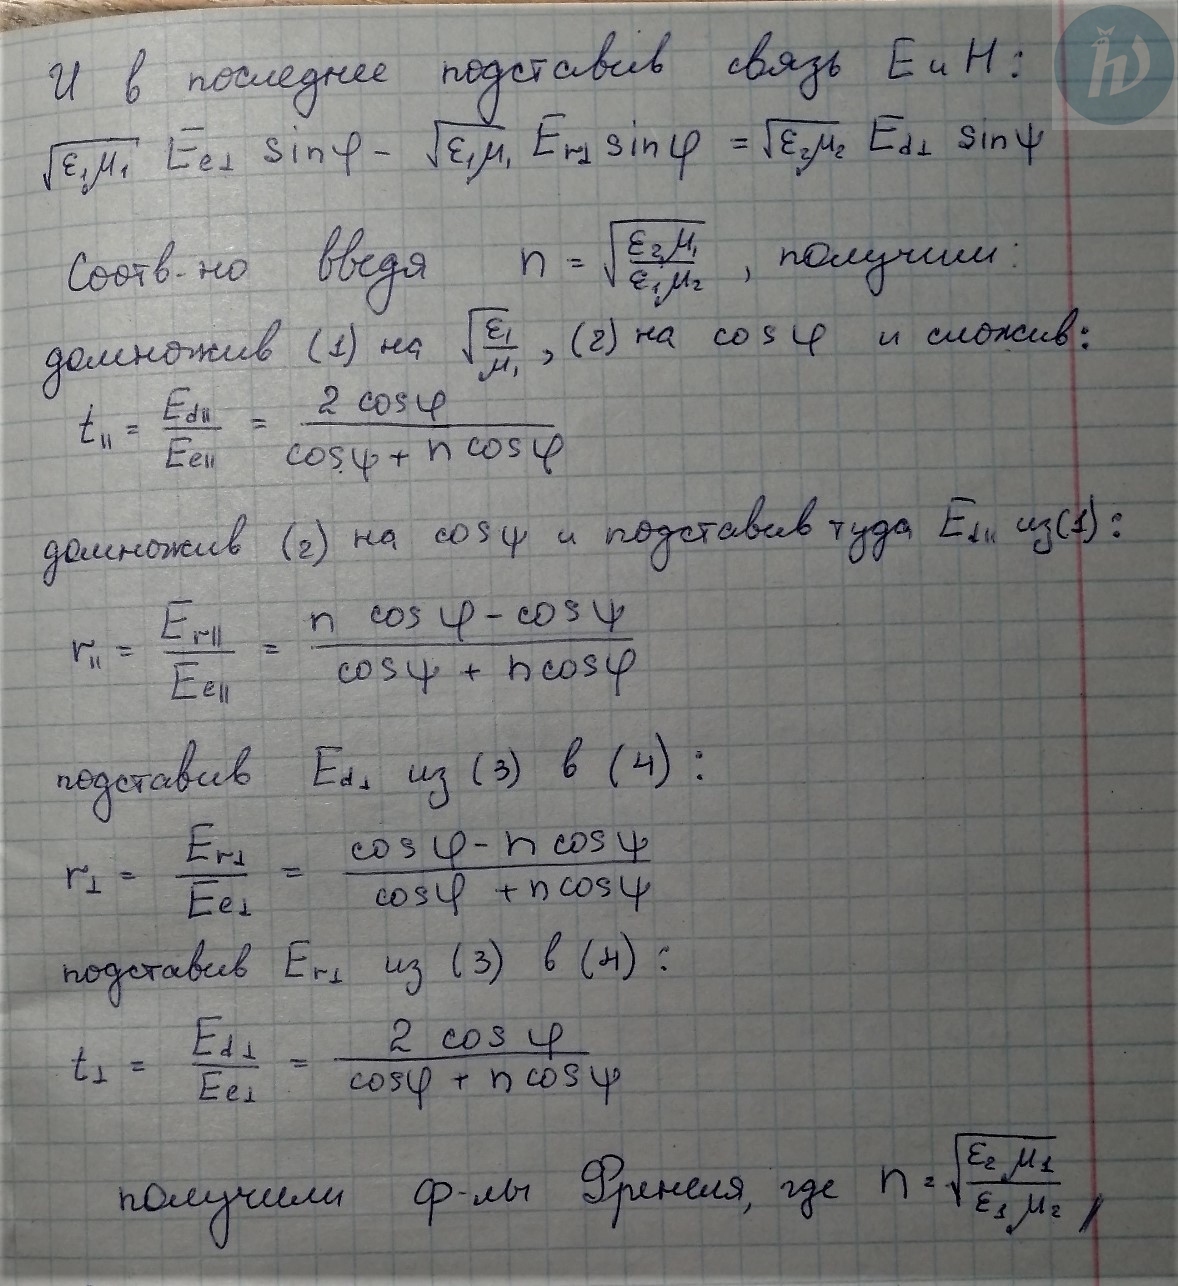 И в последнее подставив связь E и H:
√ε₁μ₁ Ee⊥ sinφ - √ε₁μ₁ Er⊥ sinφ = √ε₂μ₂ Ed⊥ sinψ
Соотв-но введя n = √(ε₂μ₁/ε₁μ₂), получим:
домножив (1) на √(ε₁/μ₁), (2) на cosφ и сложив:
t∥ = Ed∥/Ee∥ = 2 cosφ/(cosψ + n cosφ)
домножив (2) на cosψ и подставив туда Ed∥ из (1):
r∥ = Er∥/Ee∥ = (n cosφ - cosψ)/(cosψ + n cosφ)
подставив Ed⊥ из (3) в (4):
r⊥ = Er⊥/Ee⊥ = (cosφ - n cosψ)/(cosφ + n cosψ)
подставив Er⊥ из (3) в (4):
t⊥ = Ed⊥/Ee⊥ = 2 cosφ/(cosφ + n cosψ)
получили ф-лы Френеля, где n = √(ε₂μ₁/ε₁μ₂)